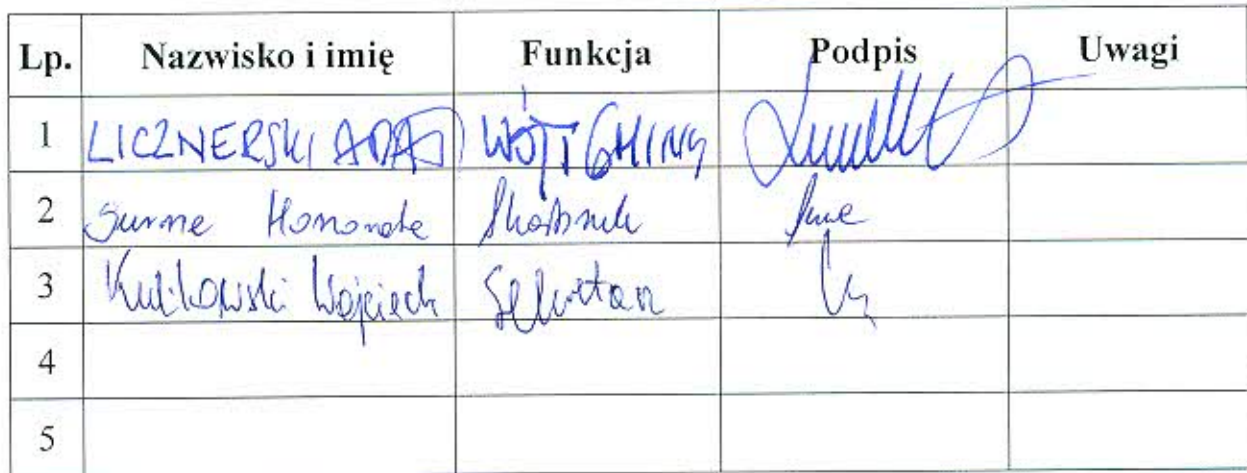 Lp. Nazwisko i imię Funkcja Podpis Uwagi
1 LICZNERSKI ADAM WÓJT GMINY
2 Honorata Skarbnik
3 Kulikowski Wojciech Sekretarz
4
5